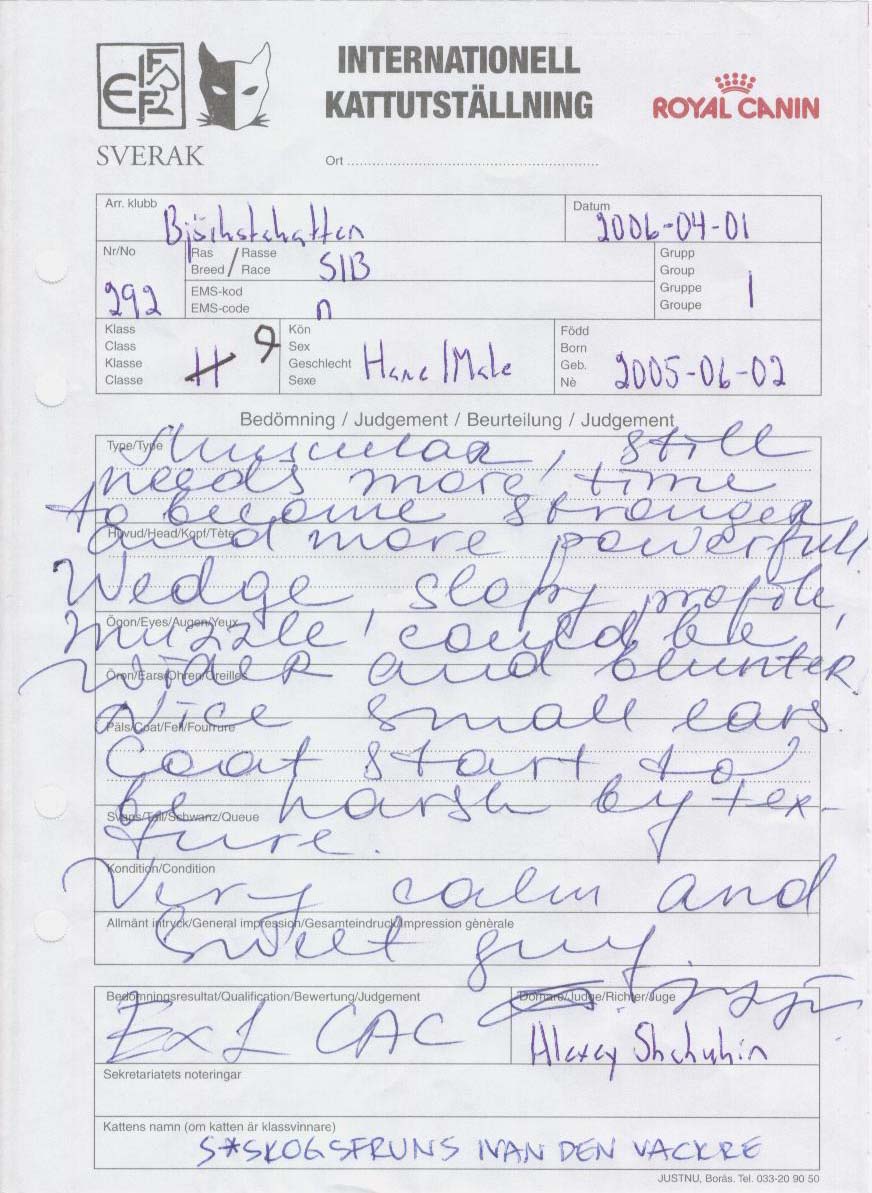 FIFe
SVERAK
INTERNATIONELL
KATTUTSTÄLLNING
ROYAL CANIN
Ort
Arr. klubb
Björkstakatten
Datum
2006-04-01
Nr/No
292
Ras / Rasse
Breed / Race
SIB
EMS-kod
EMS-code
n
Grupp
Group
Gruppe
Groupe
1
Klass
Class
Klasse
Classe
9
Kön
Sex
Geschlecht
Sexe
Hane/Male
Född
Born
Geb.
Nè
2005-06-02
Bedömning / Judgement / Beurteilung / Judgement
Type/Type
Muscular, still
needs more time
to become stronger
Huvud/Head/Kopf/Tète
and more powerfull
Wedge, slopy profile,
Ögon/Eyes/Augen/Yeux
muzzle could be
Öron/Ears/Ohren/Oreilles
wider and blunter
Päls/Coat/Fell/Fourrure
Nice small ears
Coat start to
be harsh by tex-
Svans/Tail/Schwanz/Queue
ture.
Kondition/Condition
Very calm and
Allmänt intryck/General impression/Gesamteindruck/Impression gènèrale
sweet guy
Bedömningsresultat/Qualification/Bewertung/Judgement
Ex 1 CAC
Domare/Judge/Richter/Juge
Alexey Shchukin
Sekretariatets noteringar
Kattens namn (om katten är klassvinnare)
S*SKOGSFRUNS IVAN DEN VACKRE
JUSTNU, Borås. Tel. 033-20 90 50